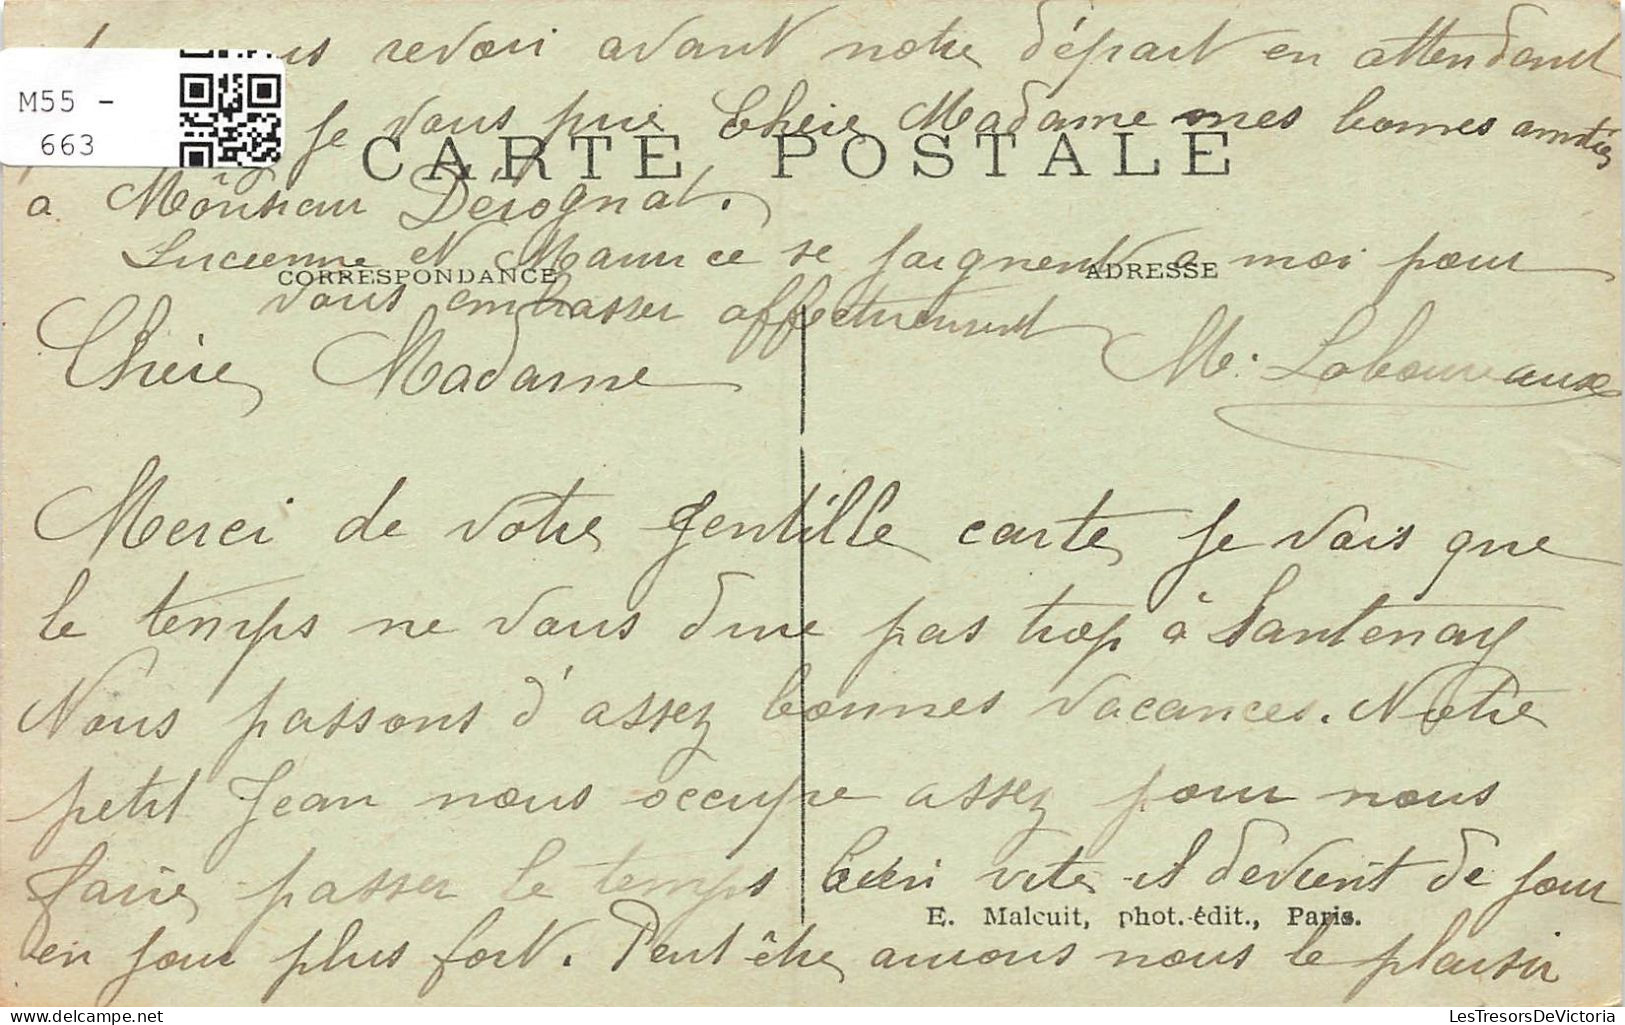 revoir avant notre départ en attendant
M55 -
663
je vous prie Chère Madame mes bonnes amitiés
CARTE POSTALE
a Monsieur Dérognat.
Lucienne et Maurice se joignent a moi pour
CORRESPONDANCE
ADRESSE
vous embrasser affectueusement
Chère Madame
M. Labouveaux
Merci de votre gentille carte, je vois que
le temps ne vous dure pas trop à Santenay
Nous passons d'assez bonnes vacances. Notre
petit Jean nous occupe assez pour nous
faire passer le temps bien vite il devient de jour
E. Malcuit, phot.-édit., Paris.
en jour plus fort. Peut être aurons nous le plaisir
delcampe.net
LesTresorsDeVictoria